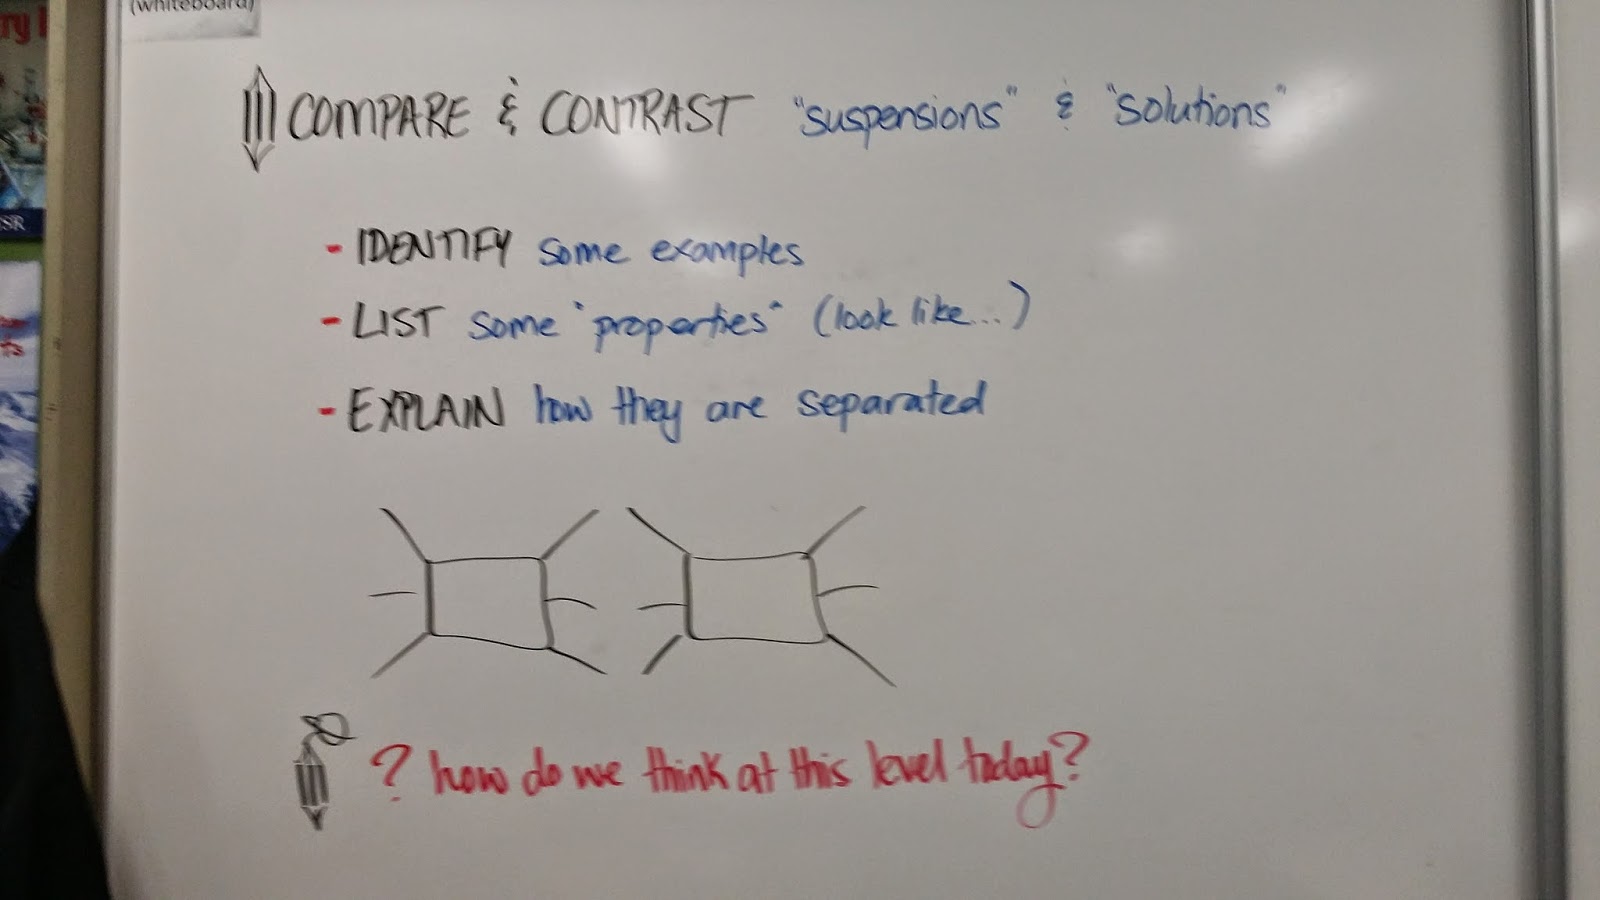 (whiteboard)
COMPARE & CONTRAST "suspensions" & "solutions"
- IDENTIFY some examples
- LIST some "properties" (look like...)
- EXPLAIN how they are separated
? how do we think at this level today?
SR